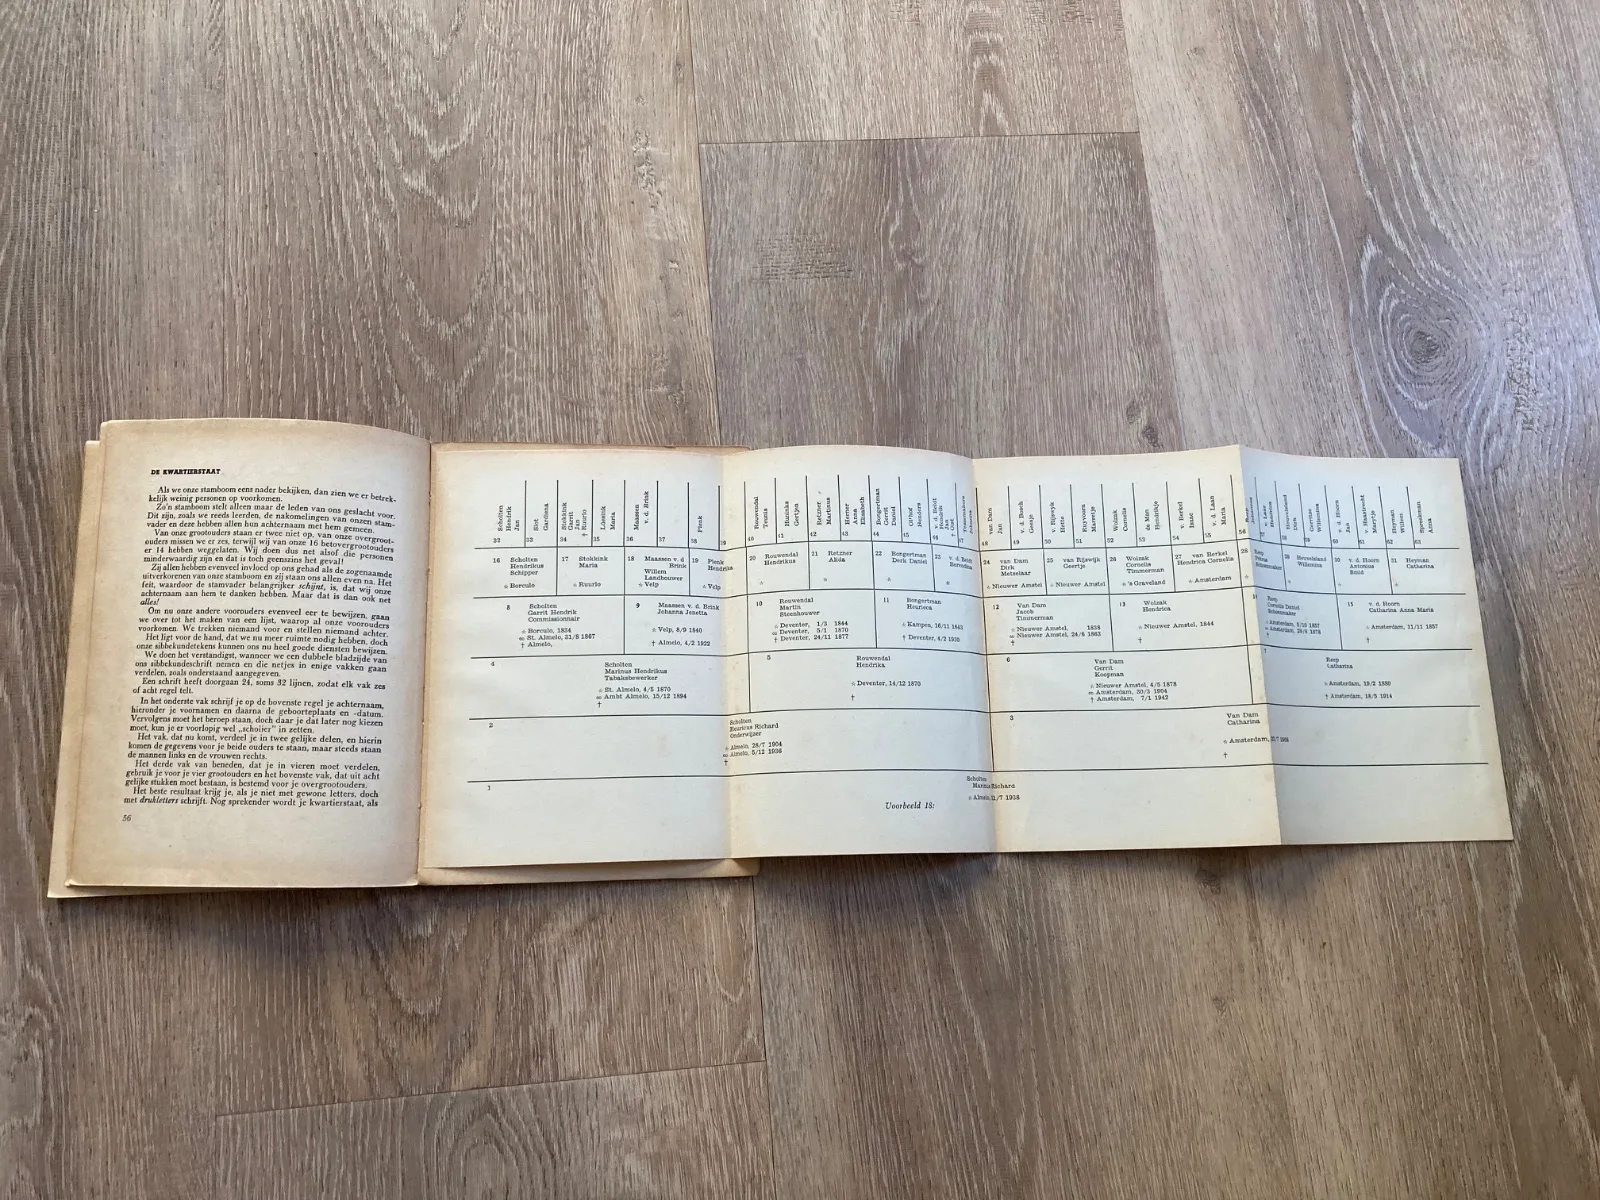 DE KWARTIERSTAAT
Als we onze stamboom eens nader bekijken, dan zien we er betrek-
kelijk weinig personen op voorkomen.
Zo'n stamboom stelt alleen maar de leden van ons geslacht voor.
Dit zijn, zoals we reeds leerden, de nakomelingen van onzen stam-
vader en deze hebben allen hun achternaam met hem gemeen.
Van onze grootouders staan er twee niet op, van onze overgroot-
ouders missen we er zes, terwijl wij van onze 16 betovergrootouders
er 14 hebben weggelaten. Wij doen dus net alsof die personen
minderwaardig zijn en dat is toch geenszins het geval!
Zij allen hebben evenveel invloed op ons gehad als de zogenaamde
uitverkorenen van onze stamboom en zij staan ons allen even na. Het
feit, waardoor de stamvader belangrijker schijnt, is, dat wij onze
achternaam aan hem te danken hebben. Maar dat is dan ook net
alles!
Om nu onze andere voorouders evenveel eer te bewijzen, gaan
we over tot het maken van een lijst, waarop al onze voorouders
voorkomen. We trekken niemand voor en stellen niemand achter.
Het ligt voor de hand, dat we nu meer ruimte nodig hebben, doch
onze sibbekundetekens kunnen ons nu heel goede diensten bewijzen.
We doen het verstandigst, wanneer we een dubbele bladzijde van
ons sibbekundeschrift nemen en die netjes in enige vakken gaan
verdelen, zoals onderstaand aangegeven.
Een schrift heeft doorgaan 24, soms 32 lijnen, zodat elk vak zes
of acht regel telt.
In het onderste vak schrijf je op de bovenste regel je achternaam,
hieronder je voornamen en daarna de geboorteplaats en -datum.
Vervolgens moet het beroep staan, doch daar je dat later nog kiezen
moet, kun je er voorlopig wel „scholier” in zetten.
Het vak, dat nu komt, verdeel je in twee gelijke delen, en hierin
komen de gegevens voor je beide ouders te staan, maar steeds staan
de mannen links en de vrouwen rechts.
Het derde vak van beneden, dat je in vieren moet verdelen,
gebruik je voor je vier grootouders en het bovenste vak, dat uit acht
gelijke stukken moet bestaan, is bestemd voor je overgrootouders.
Het beste resultaat krijg je, als je niet met gewone letters, doch
met drukletters schrijft. Nog sprekender wordt je kwartierstaat, als
56
32 Scholten Hendrik Jan
33 Slot Gardena
34 Stokkink Garrit Jan † Ruurlo
35 Maria
36 Maassen v. d. Brink
37
38 Plenk
39
40 Rouwendal Teunis
41 Gertjen
42 Retzner Martinus
43 Herner Anna Elisabeth
44 Bongertman Gerrit Daniel
45 Olthof Henders
46
47
48 van Dam Jan
49 v. d. Bosch Geesje
50 Rijswyk
51 Ruyvoorn Marretje
52 Wolzak Cornelis
53 de Man Hendrikje
54 v. Berkel Isaac
55 v. d. Laan Maria
56
60 v. d. Hoorn Jan
62 Heyman Willem
63 Speelman Anna
16 Scholten
Hendrikus
Schipper
☆ Borculo
17 Stokkink
Maria
☆ Ruurlo
18 Maassen v. d.
Brink
Willem
Landbouwer
☆ Velp
19 Plenk
Hendrika
☆ Velp
20 Rouwendal
Hendrikus
☆
21 Retzner
Alida
☆
22 Bongertman
Derk Daniel
☆
23
24 van Dam
Dirk
Metselaar
☆ Nieuwer Amstel
25 van Rijswijk
Geertje
☆ Nieuwer Amstel
26 Wolzak
Cornelis
Timmerman
☆ 's Graveland
27 van Berkel
Hendrica Cornelia
☆ Amsterdam
28 Reep
30 v. d. Hoorn
Antonius
Smid
31 Heyman
Catharina
8 Scholten
Garrit Hendrik
Commissionair
☆ Borculo, 1834
∞ St. Almelo, 21/8 1867
† Almelo,
9 Maassen v. d. Brink
Johanna Jenetta
☆ Velp, 8/9 1840
† Almelo, 4/2 1922
10 Rouwendal
Martin
Steenhouwer
☆ Deventer, 1/3 1844
∞ Deventer, 5/1 1870
† Deventer, 24/11 1877
11 Bongertman
Henrieca
☆ Kampen, 16/11 1843
† Deventer, 4/2 1930
12 Van Dam
Jacob
Timmerman
☆ Nieuwer Amstel, 1838
∞ Nieuwer Amstel, 24/8 1863
†
13 Wolzak
Hendrica
☆ Nieuwer Amstel, 1844
†
Reep
Cornelis Daniel
Schoenmaker
†
15 v. d. Hoorn
Catharina Anna Maria
☆ Amsterdam, 11/11 1857
†
4 Scholten
Marinus Hendrikus
Tabaksbewerker
☆ St. Almelo, 4/5 1870
∞ Ambt Almelo, 15/12 1894
†
5 Rouwendal
Hendrika
☆ Deventer, 14/12 1870
†
6 Van Dam
Gerrit
Koopman
☆ Nieuwer Amstel, 4/5 1878
∞ Amsterdam, 30/3 1904
† Amsterdam, 7/1 1942
7 Reep
Catharina
☆ Amsterdam, 19/2 1880
† Amsterdam, 18/5 1914
2 Scholten
Henricus Richard
Onderwijzer
☆ Almelo, 28/7 1904
∞ Almelo, 5/12 1936
†
3 Van Dam
Catharina
☆ Amsterdam,
†
1 Scholten
Marinus Richard
☆ Almelo, 11/7 1938
Voorbeeld 18: